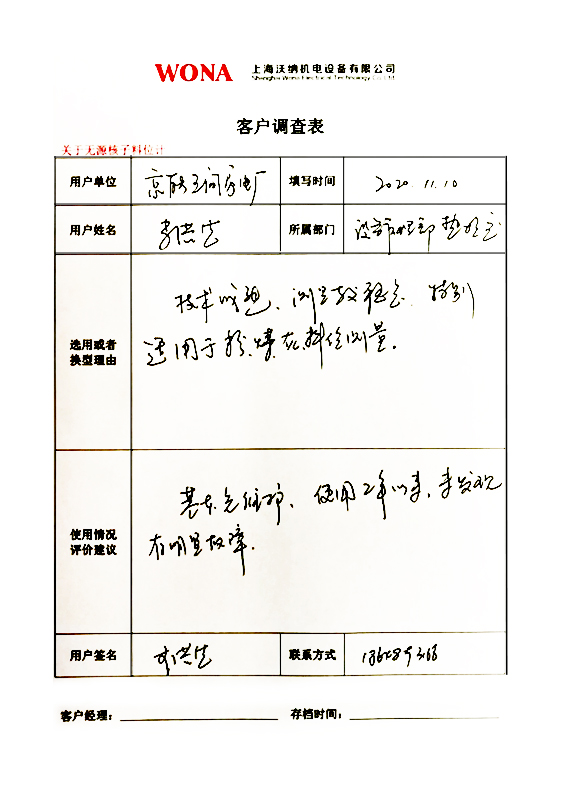 WONA 上海沃纳机电设备有限公司
Shanghai Wona Electrical Technology Co.Ltd
客户调查表
关于无源核子料位计
用户单位
填写时间 2020.11.10
用户姓名
所属部门 设备部
选用或者
换型理由
技术成熟、测量较稳定、特别
适用于粉煤灰料位测量。
使用情况
评价建议
基本免维护、使用2年以来,未发现
有明显故障.
用户签名
联系方式
客户经理:
存档时间: